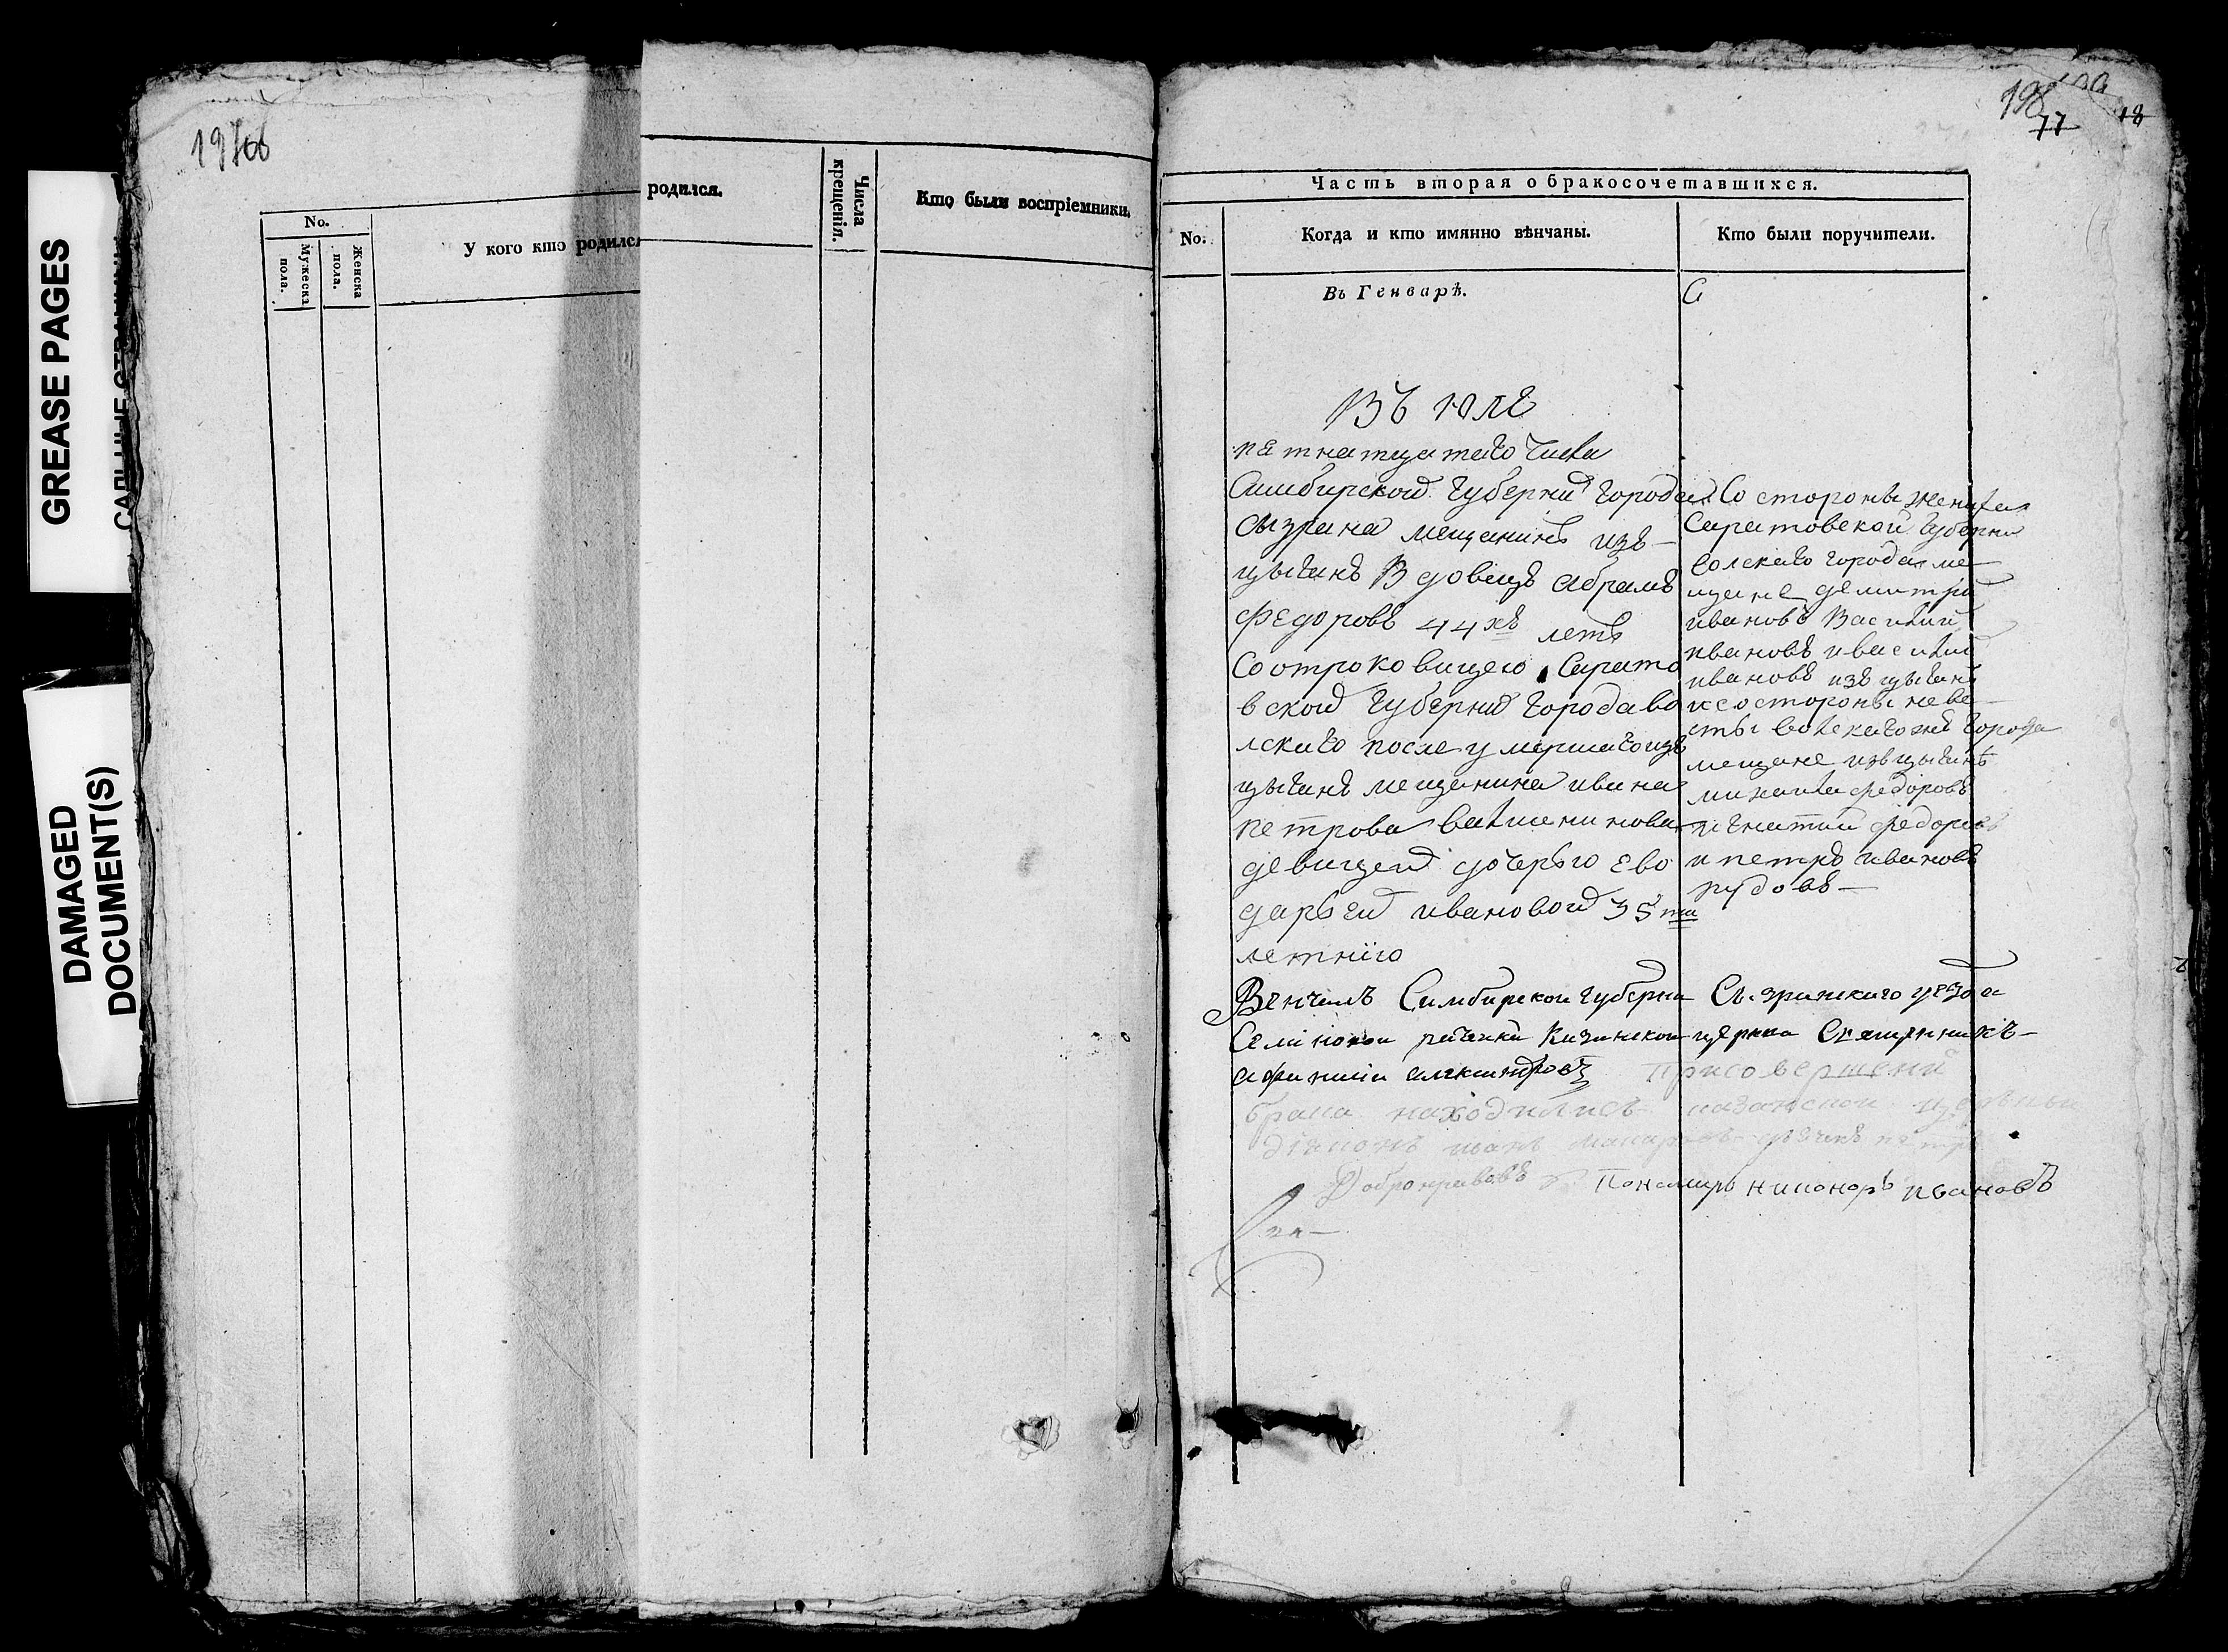 GREASE PAGES
DAMAGED
DOCUMENT(S)
No.
Мужеска
пола.
Женска
пола.
У кого кто родился
родился.
Числа
крещенія.
Кто были воспріемники.
77
18
Часть вторая о бракосочетавшихся.
No.
Когда и кто имянно вѣнчаны.
Кто были поручители.
Въ Генварѣ.
С
Въ юле
петнатцатаго числа
Симбирской губерни города
сызрана мещанинъ изъ-
цыганъ вдовецъ абрамъ
федоровъ 44хъ летъ
Со отроковицею Сарато
вской губерни города во
лскаго после умершаго изъ
цыганъ мещанина ивана
петрова
девицей дочерью ево
дарьей ивановой 35ти
летнию
Со стороны жениха
Саратовской губерни
волскаго города ме
щане демитрй
ивановъ Василий
ивановъ ивасилий
ивановъ изъ цыганъ
исостороны неве
сты волскагоже города
мещане изъцыганъ
михаила федоровъ
игнатии федоровъ
и петръ ивановъ
Венчалъ Симбирской губерни Сызранскаго уезда
Казанской церкви Священникъ-
афанасіи александровъ присовершени
брака находились казанской церкви
діаконъ дьячекъ петръ
Добронравовъ Пономарь никоноръ ивановъ